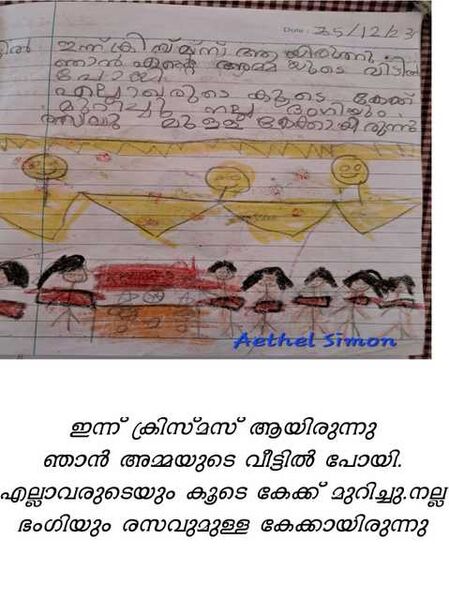 Date: 25/12/23
ഇന്ന് ക്രിസ്മസ് ആയിരുന്നു
ഞാൻ എന്റെ അമ്മയുടെ വീട്ടിൽ
പോയി
എല്ലാവരുടെ കൂടെ കേക്ക്
മുറിച്ചു നല്ല ഭംഗിയും
രസവും മുള്ള കേക്കായിരുന്നു
Aethel Simon
ഇന്ന് ക്രിസ്മസ് ആയിരുന്നു
ഞാൻ അമ്മയുടെ വീട്ടിൽ പോയി.
എല്ലാവരുടെയും കൂടെ കേക്ക് മുറിച്ചു.നല്ല
ഭംഗിയും രസവുമുള്ള കേക്കായിരുന്നു